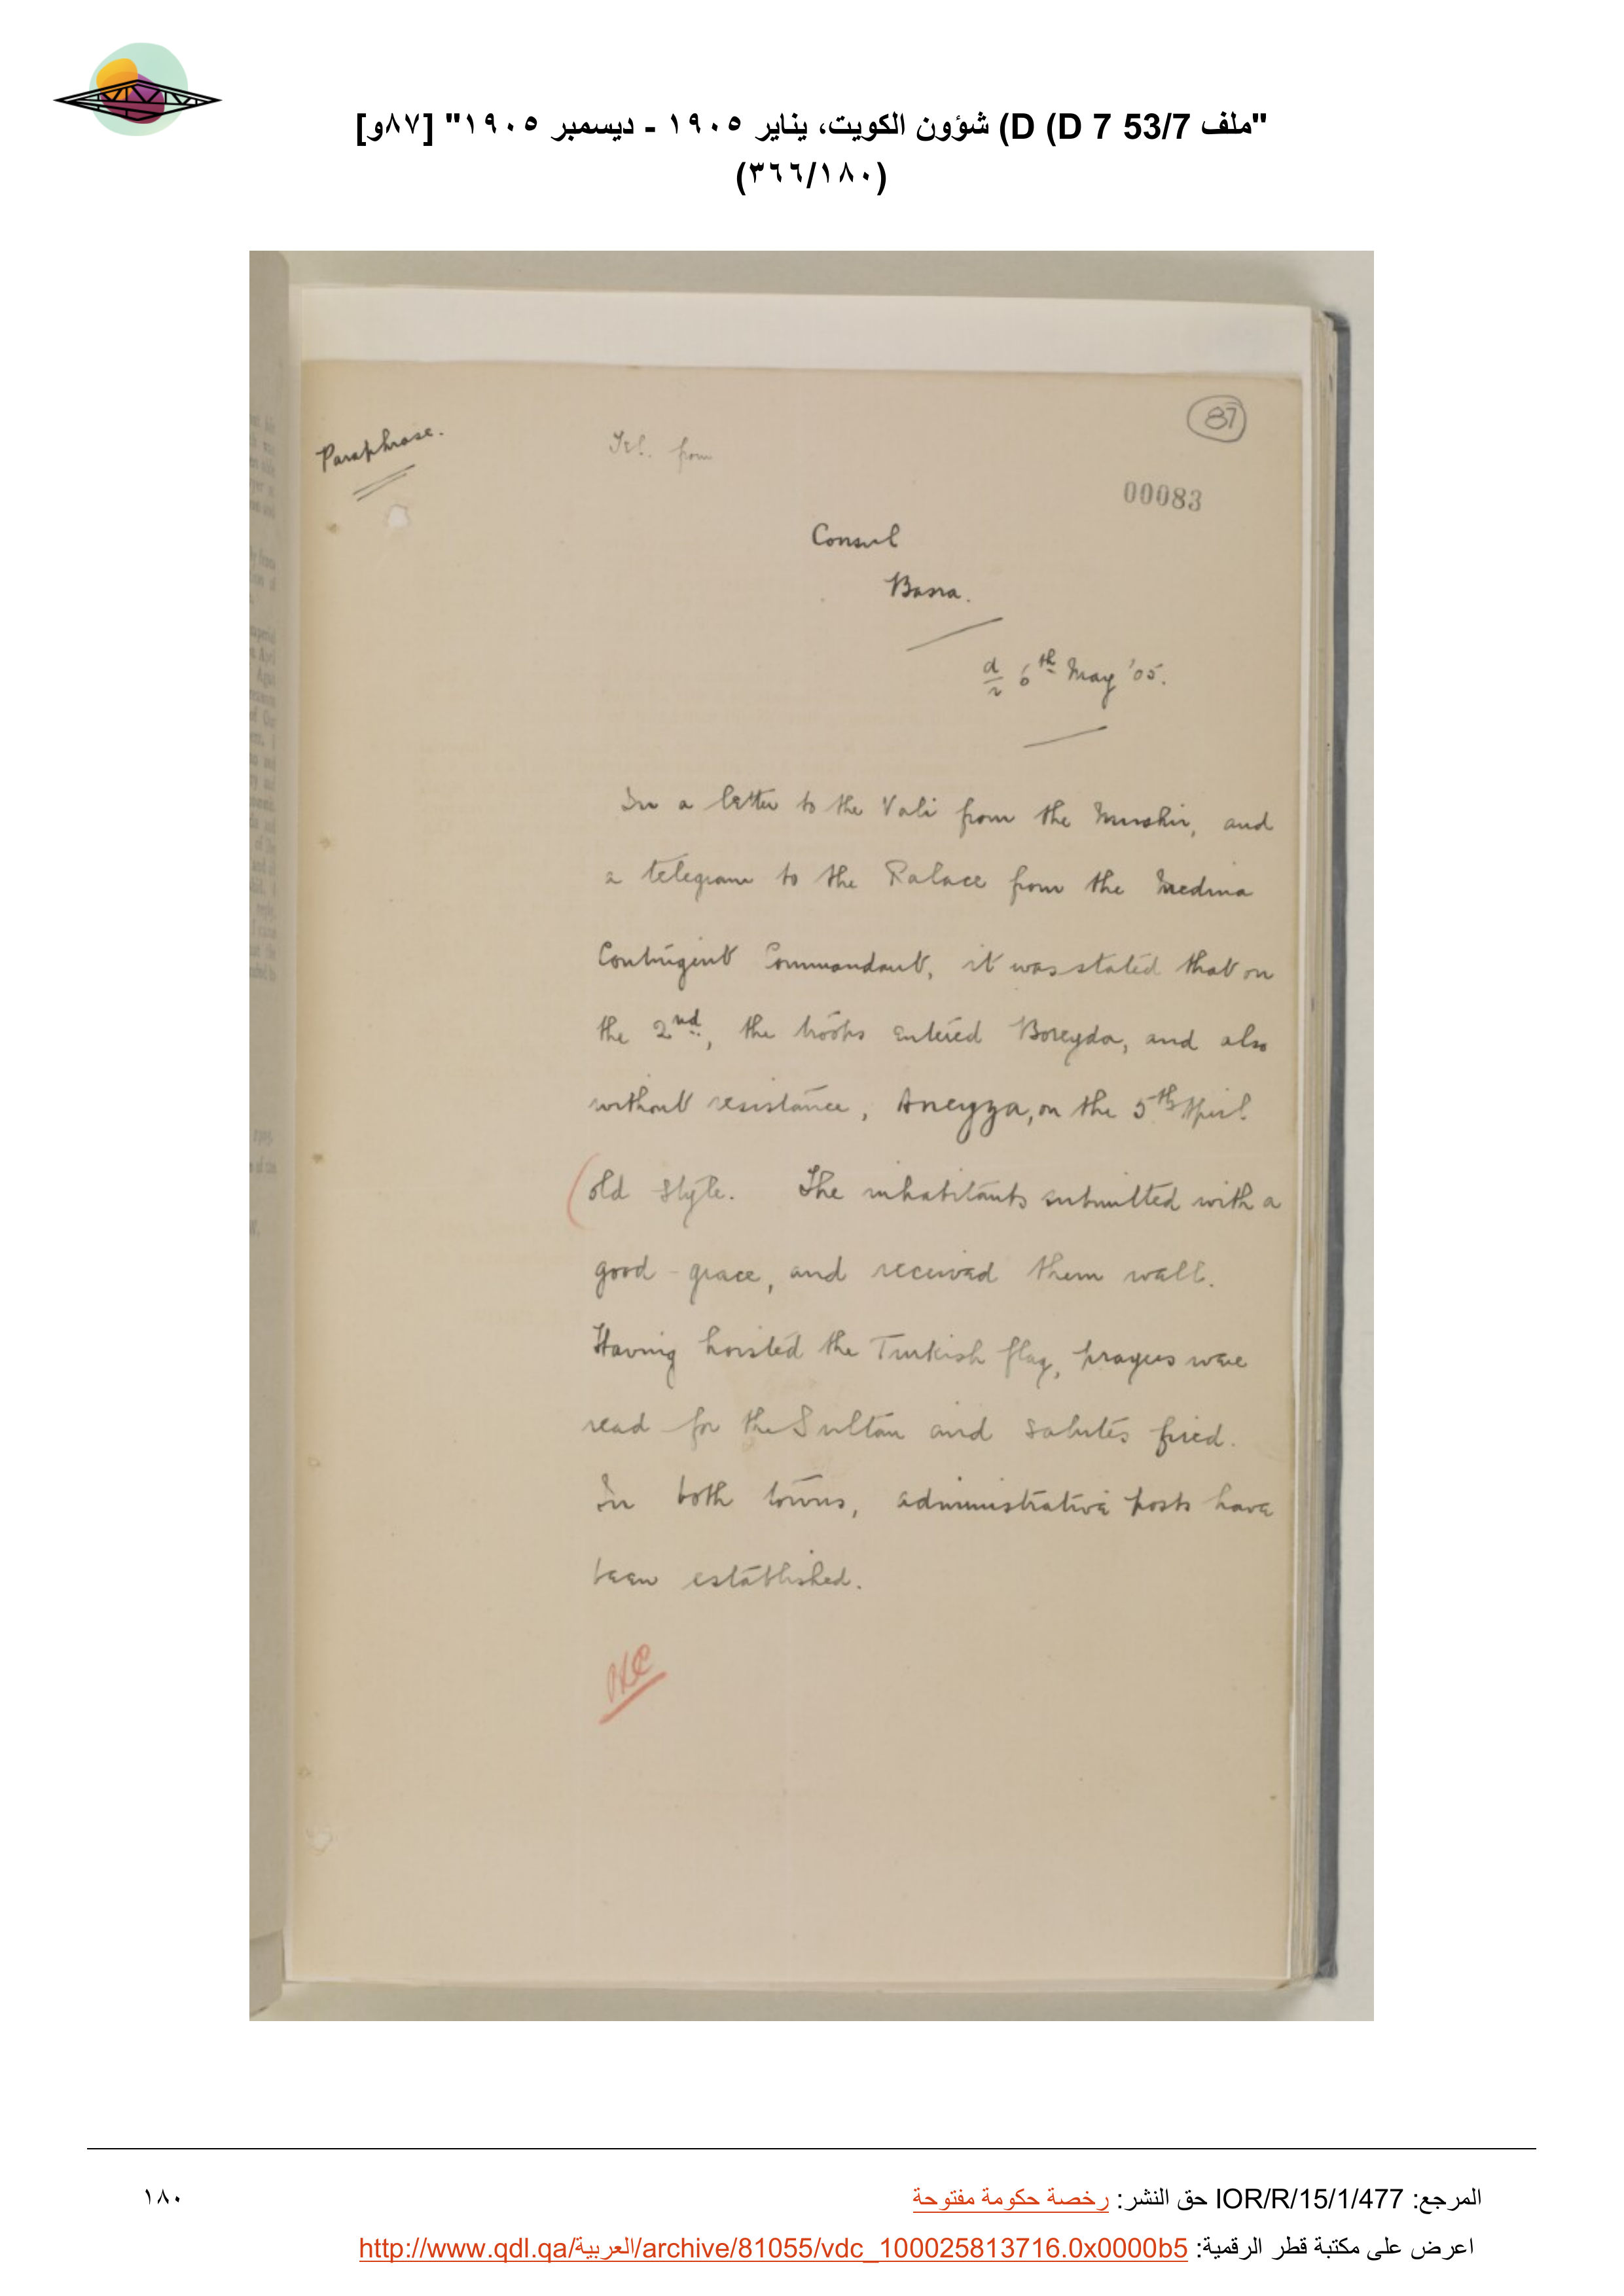 "ملف D (D 7 53/7) شؤون الكويت، يناير ١٩٠٥ - ديسمبر ١٩٠٥" [٨٧و]
(٣٦٦/١٨٠)
87
Paraphrase.
Tel. from
00083
Consul
Basra.
d/r 6th May '05.
In a letter to the Vali from the Mushir, and
a telegram to the Palace from the Medina
Contingent Commandant, it was stated that on
the 2nd, the troops entered Boreyda, and also
without resistance, Aneyza, on the 5th April
(old style. The inhabitants submitted with a
good-grace, and received them well.
Having hoisted the Turkish flag, prayers were
read for the Sultan and salutes fired.
In both towns, administrative posts have
been established.
المرجع: IOR/R/15/1/477 حق النشر: رخصة حكومة مفتوحة
١٨٠
اعرض على مكتبة قطر الرقمية: http://www.qdl.qa/العربية/archive/81055/vdc_100025813716.0x0000b5